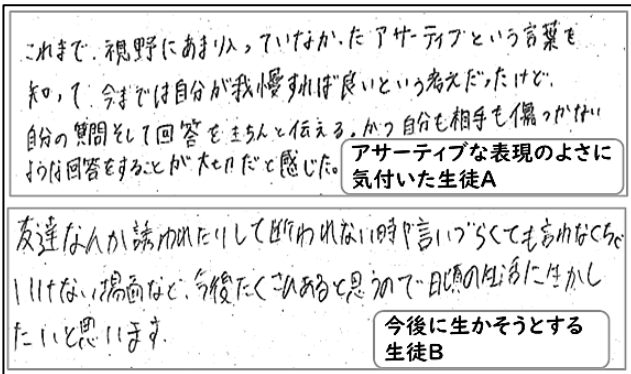 これまで、視野にあまり入っていなかったアサーティブという言葉を
知って、今までは自分が我慢すれば良いという考えだったけど、
自分の質問そして回答をきちんと伝える。かつ自分も相手も傷つかない
ような回答をすることが大切だと感じた。
アサーティブな表現のよさに
気付いた生徒A
友達なんか誘われたりして断われない時や言いづらくても言わなくちゃ
いけない場面など、今後たくさんあると思うので日頃の生活に生かし
たいと思います。
今後に生かそうとする
生徒B